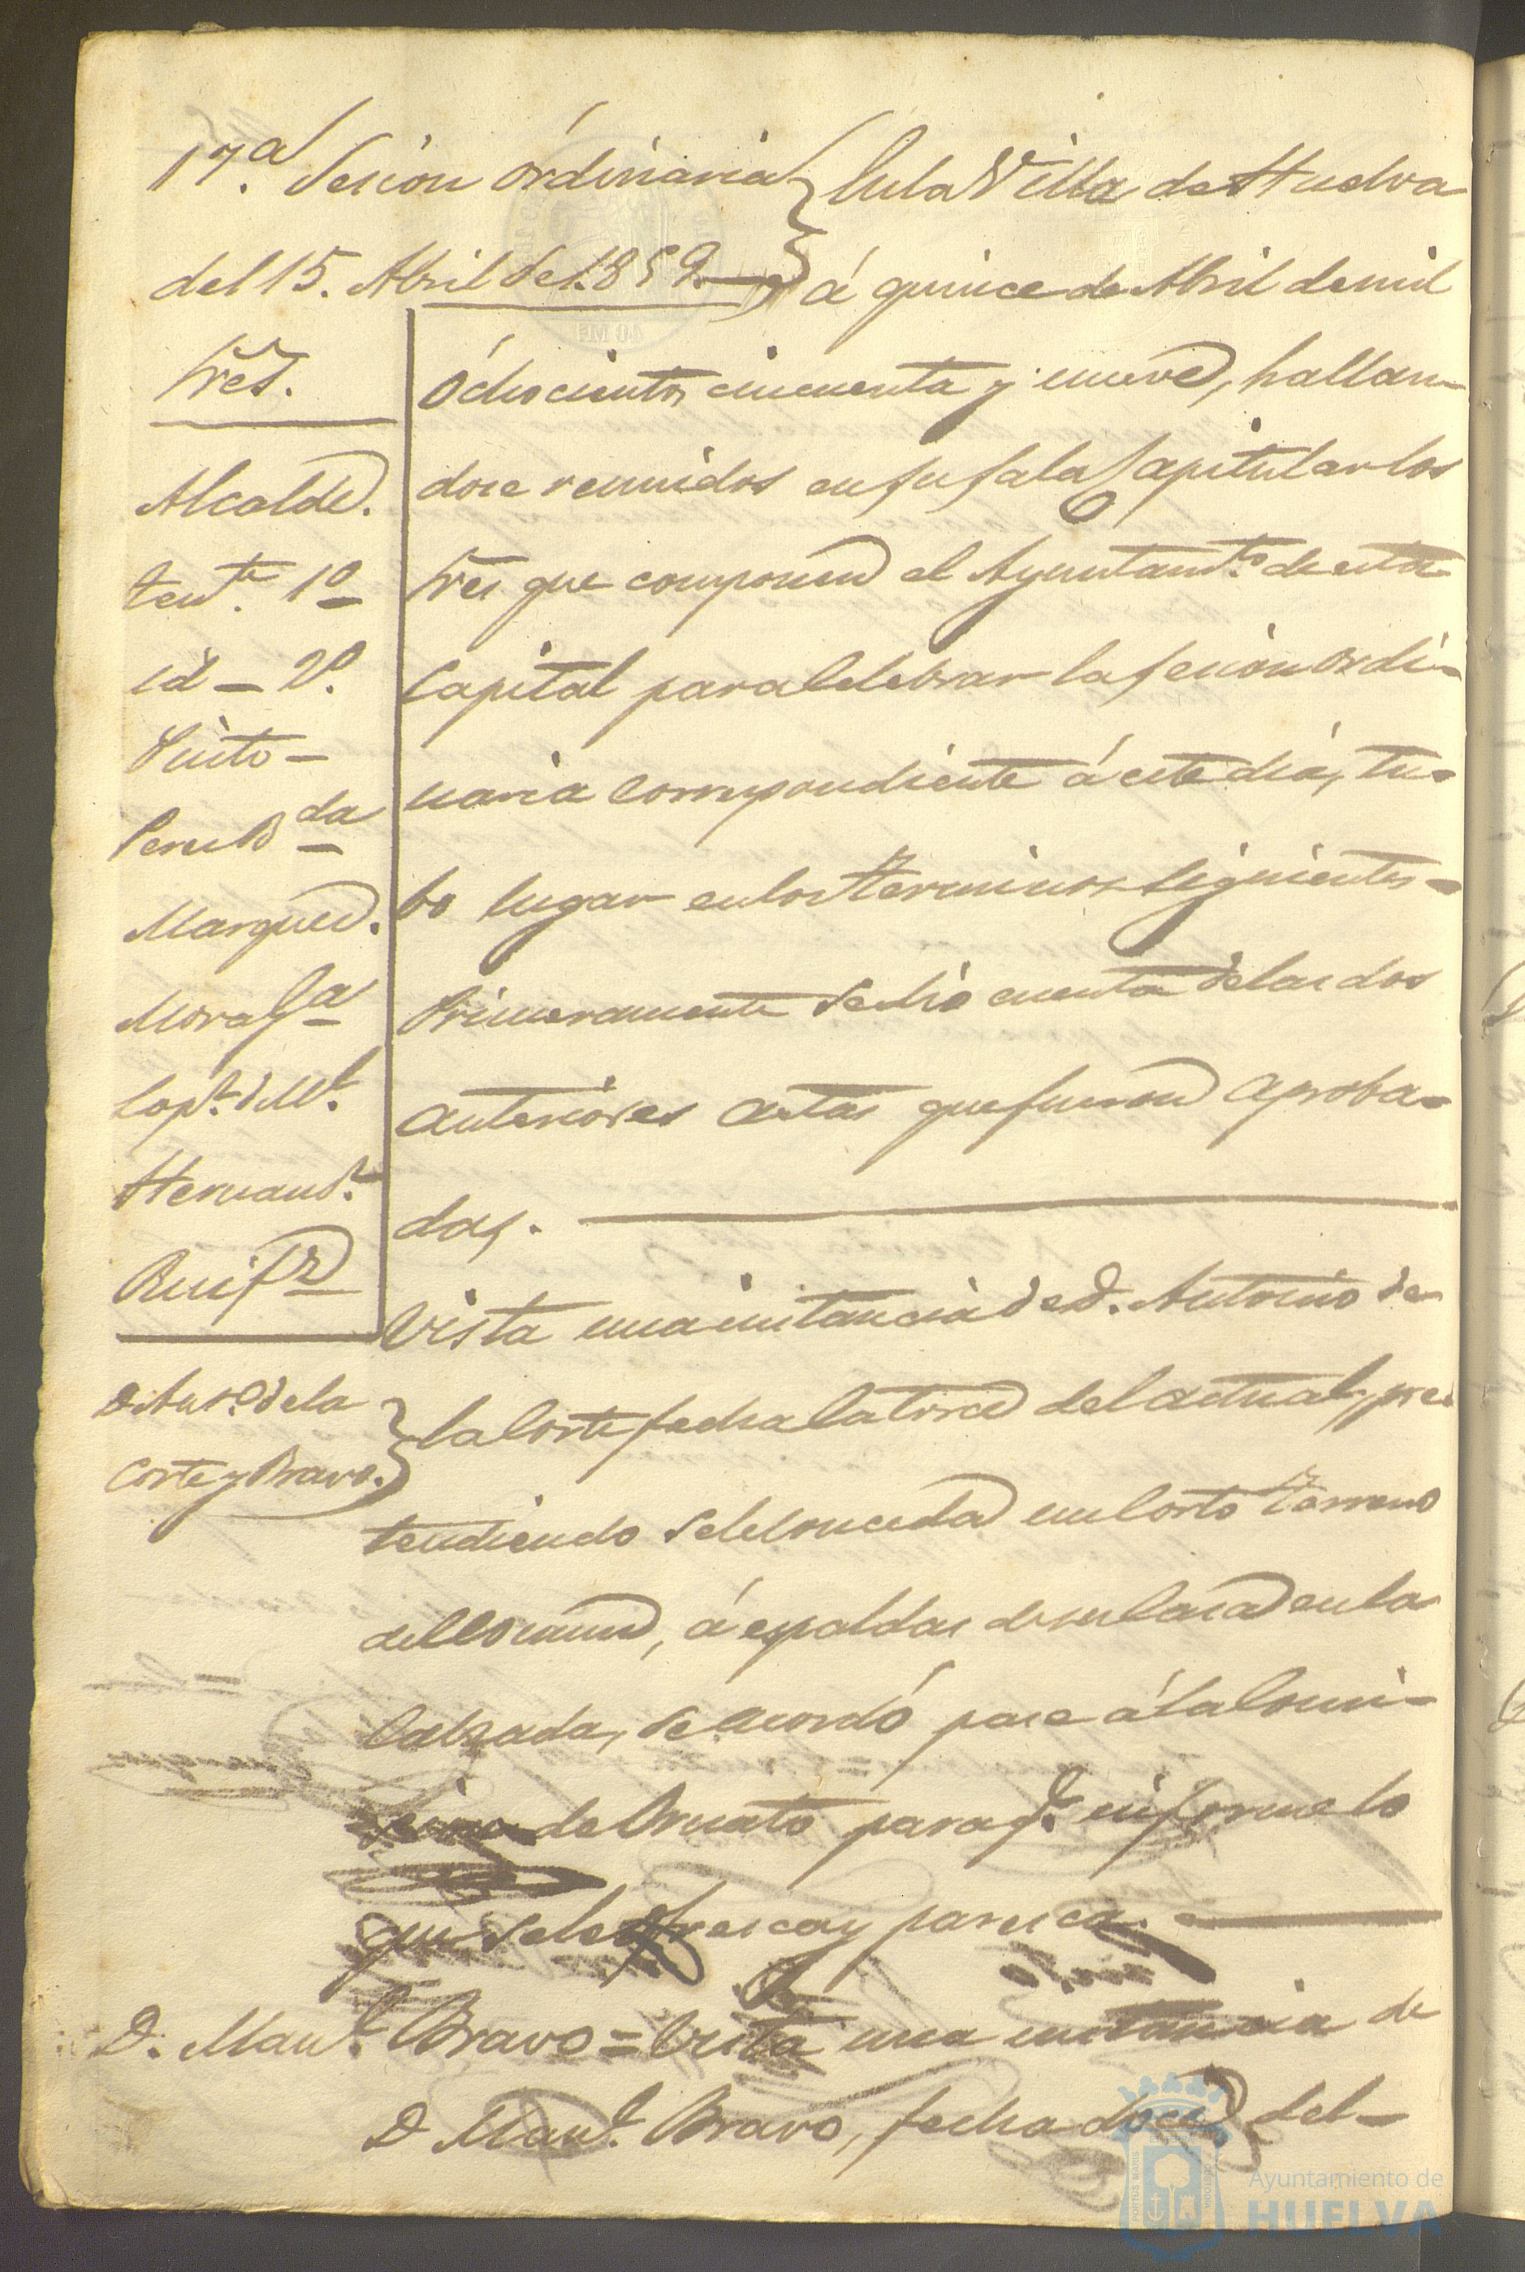 17.ª Sesion órdinaria
del 15. Abril de 1.859.
Sres.
Alcalde.
Tente. 1º
id – 2º.
Pinto –
Marquez.
Mora Ga
Lopz. de Mt.
Hernandz.
D. Anto. de la
Corte y Bravo.
En la Villa de Huelva
á quince de Abril de mil
óchocientos cincuenta y nueve, hallan-
dose reunidos en su sala Capitular los
Sres que componen el Ayuntamto. de esta
Capital para celebrar la sesion ordi-
naria correspondiente á este dia, tu-
bo lugar en los terminos siguientes-
Primeramente se dió cuenta de las dos
anteriores actas que fueron aproba-
das.
Vista una instancia de D. Antonio de
la Corte fecha catorce del actual, pre
tendiendo se le conceda un corto terreno
del comun, á espaldas de su casa en la
Calzada, se acordó pase á la Comi-
sion de Ornato para qe. informe lo
que se le ofresca y paresca.
D. Manl. Bravo = Vista una instancia de
D Manl. Bravo, fecha doce del-
Ayuntamiento de
HUELVA